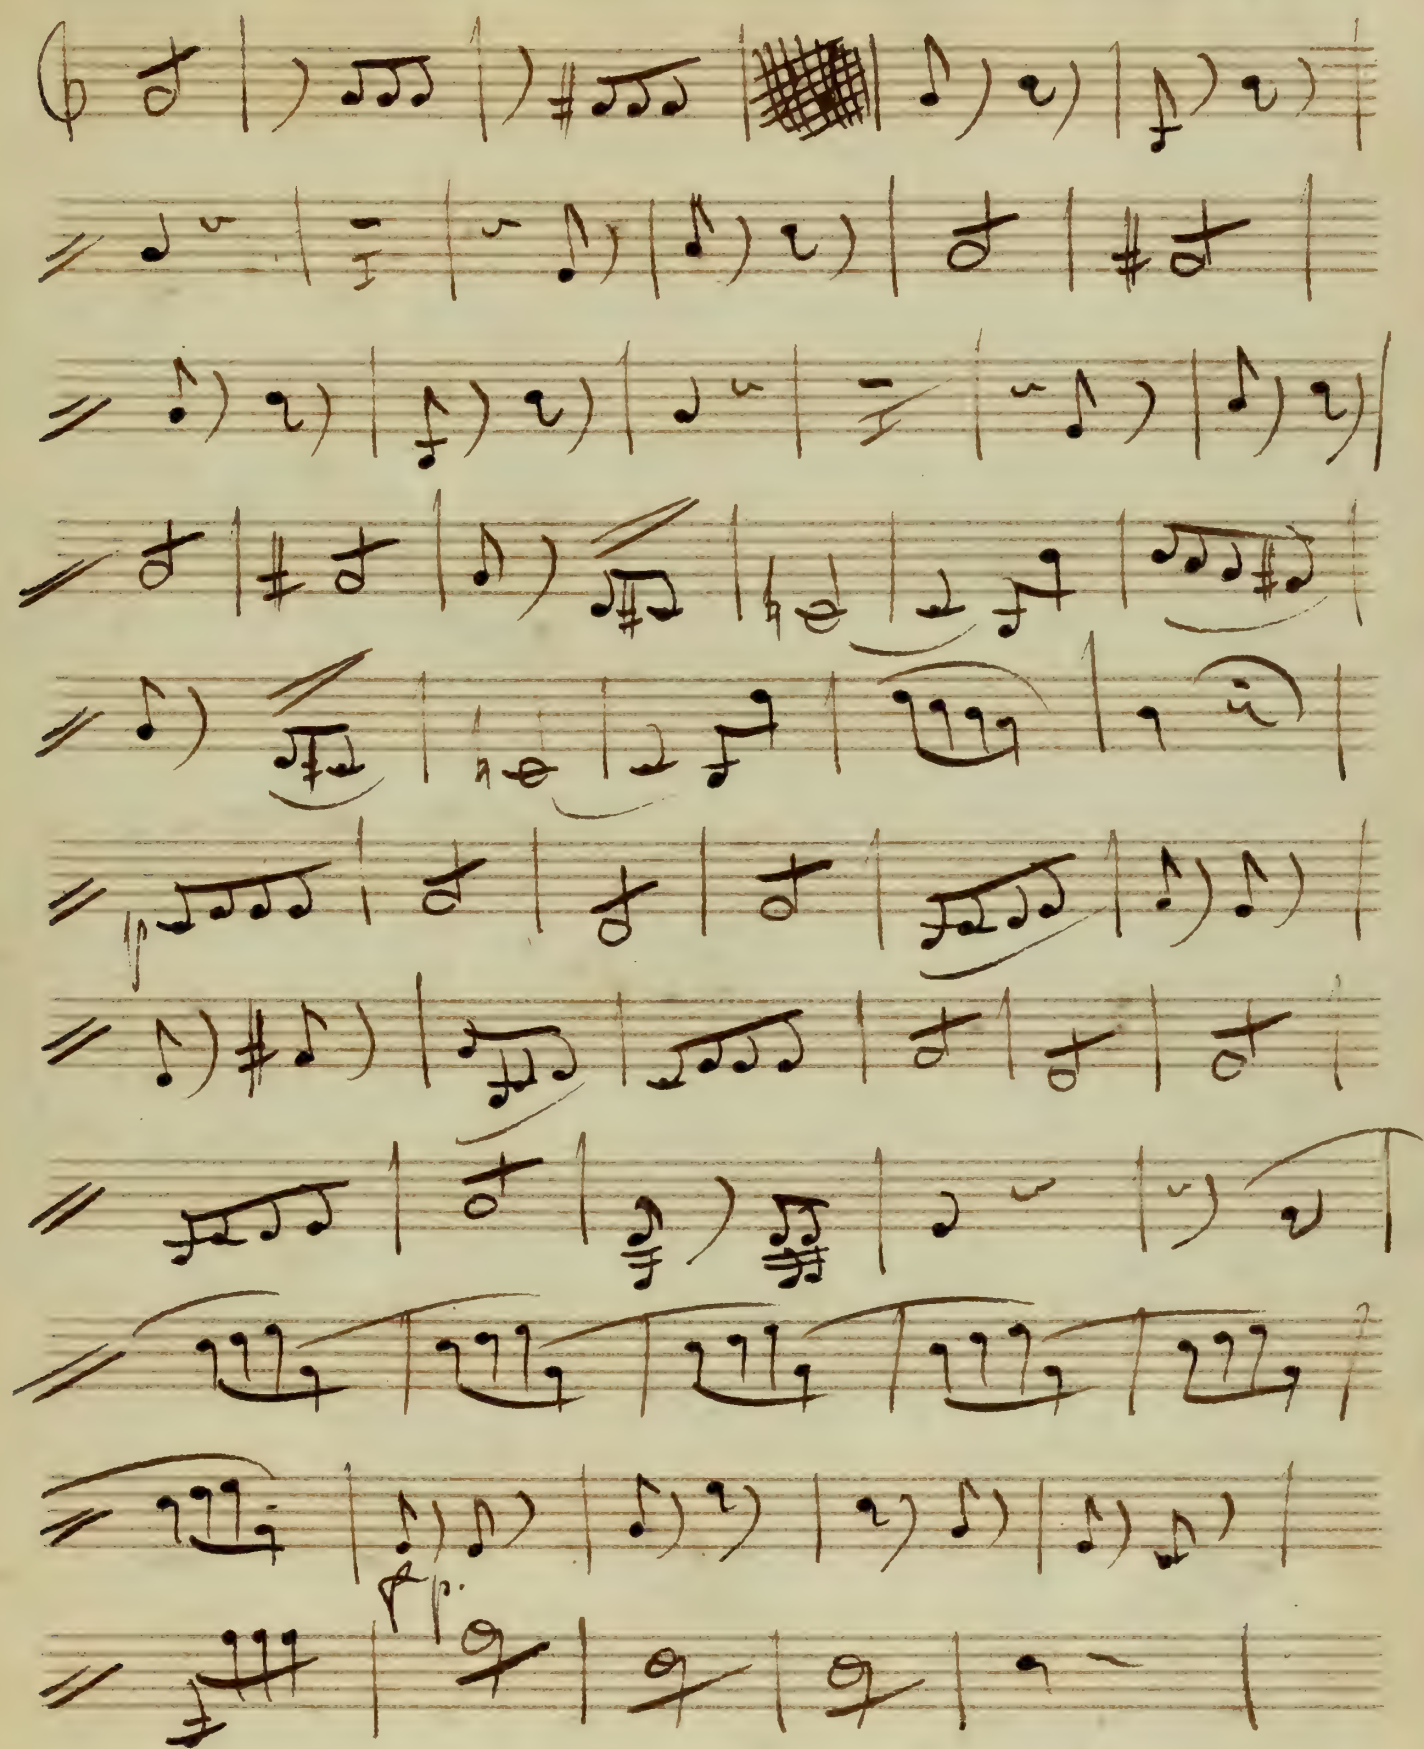 p
fp.